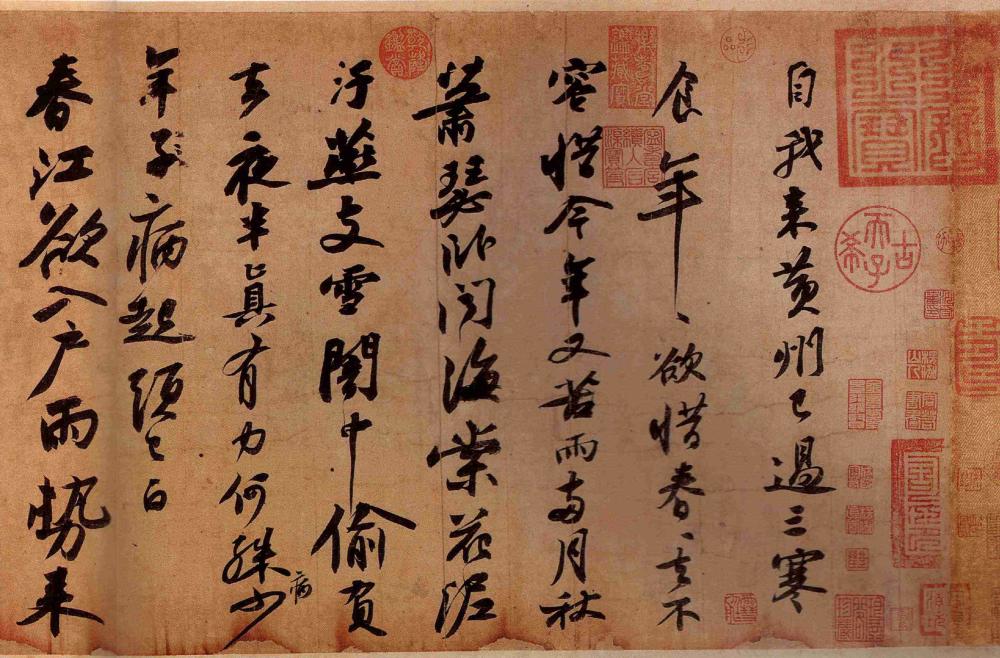 自我來黃州已過三寒
食年、欲惜春、去不
容惜今年又苦雨兩月秋
蕭瑟臥聞海棠花泥
汙燕支雪闇中偷負
去夜半真有力何殊少
病
年子病起須已白
春江欲入戶雨勢來
古希天子
乾隆鑑賞